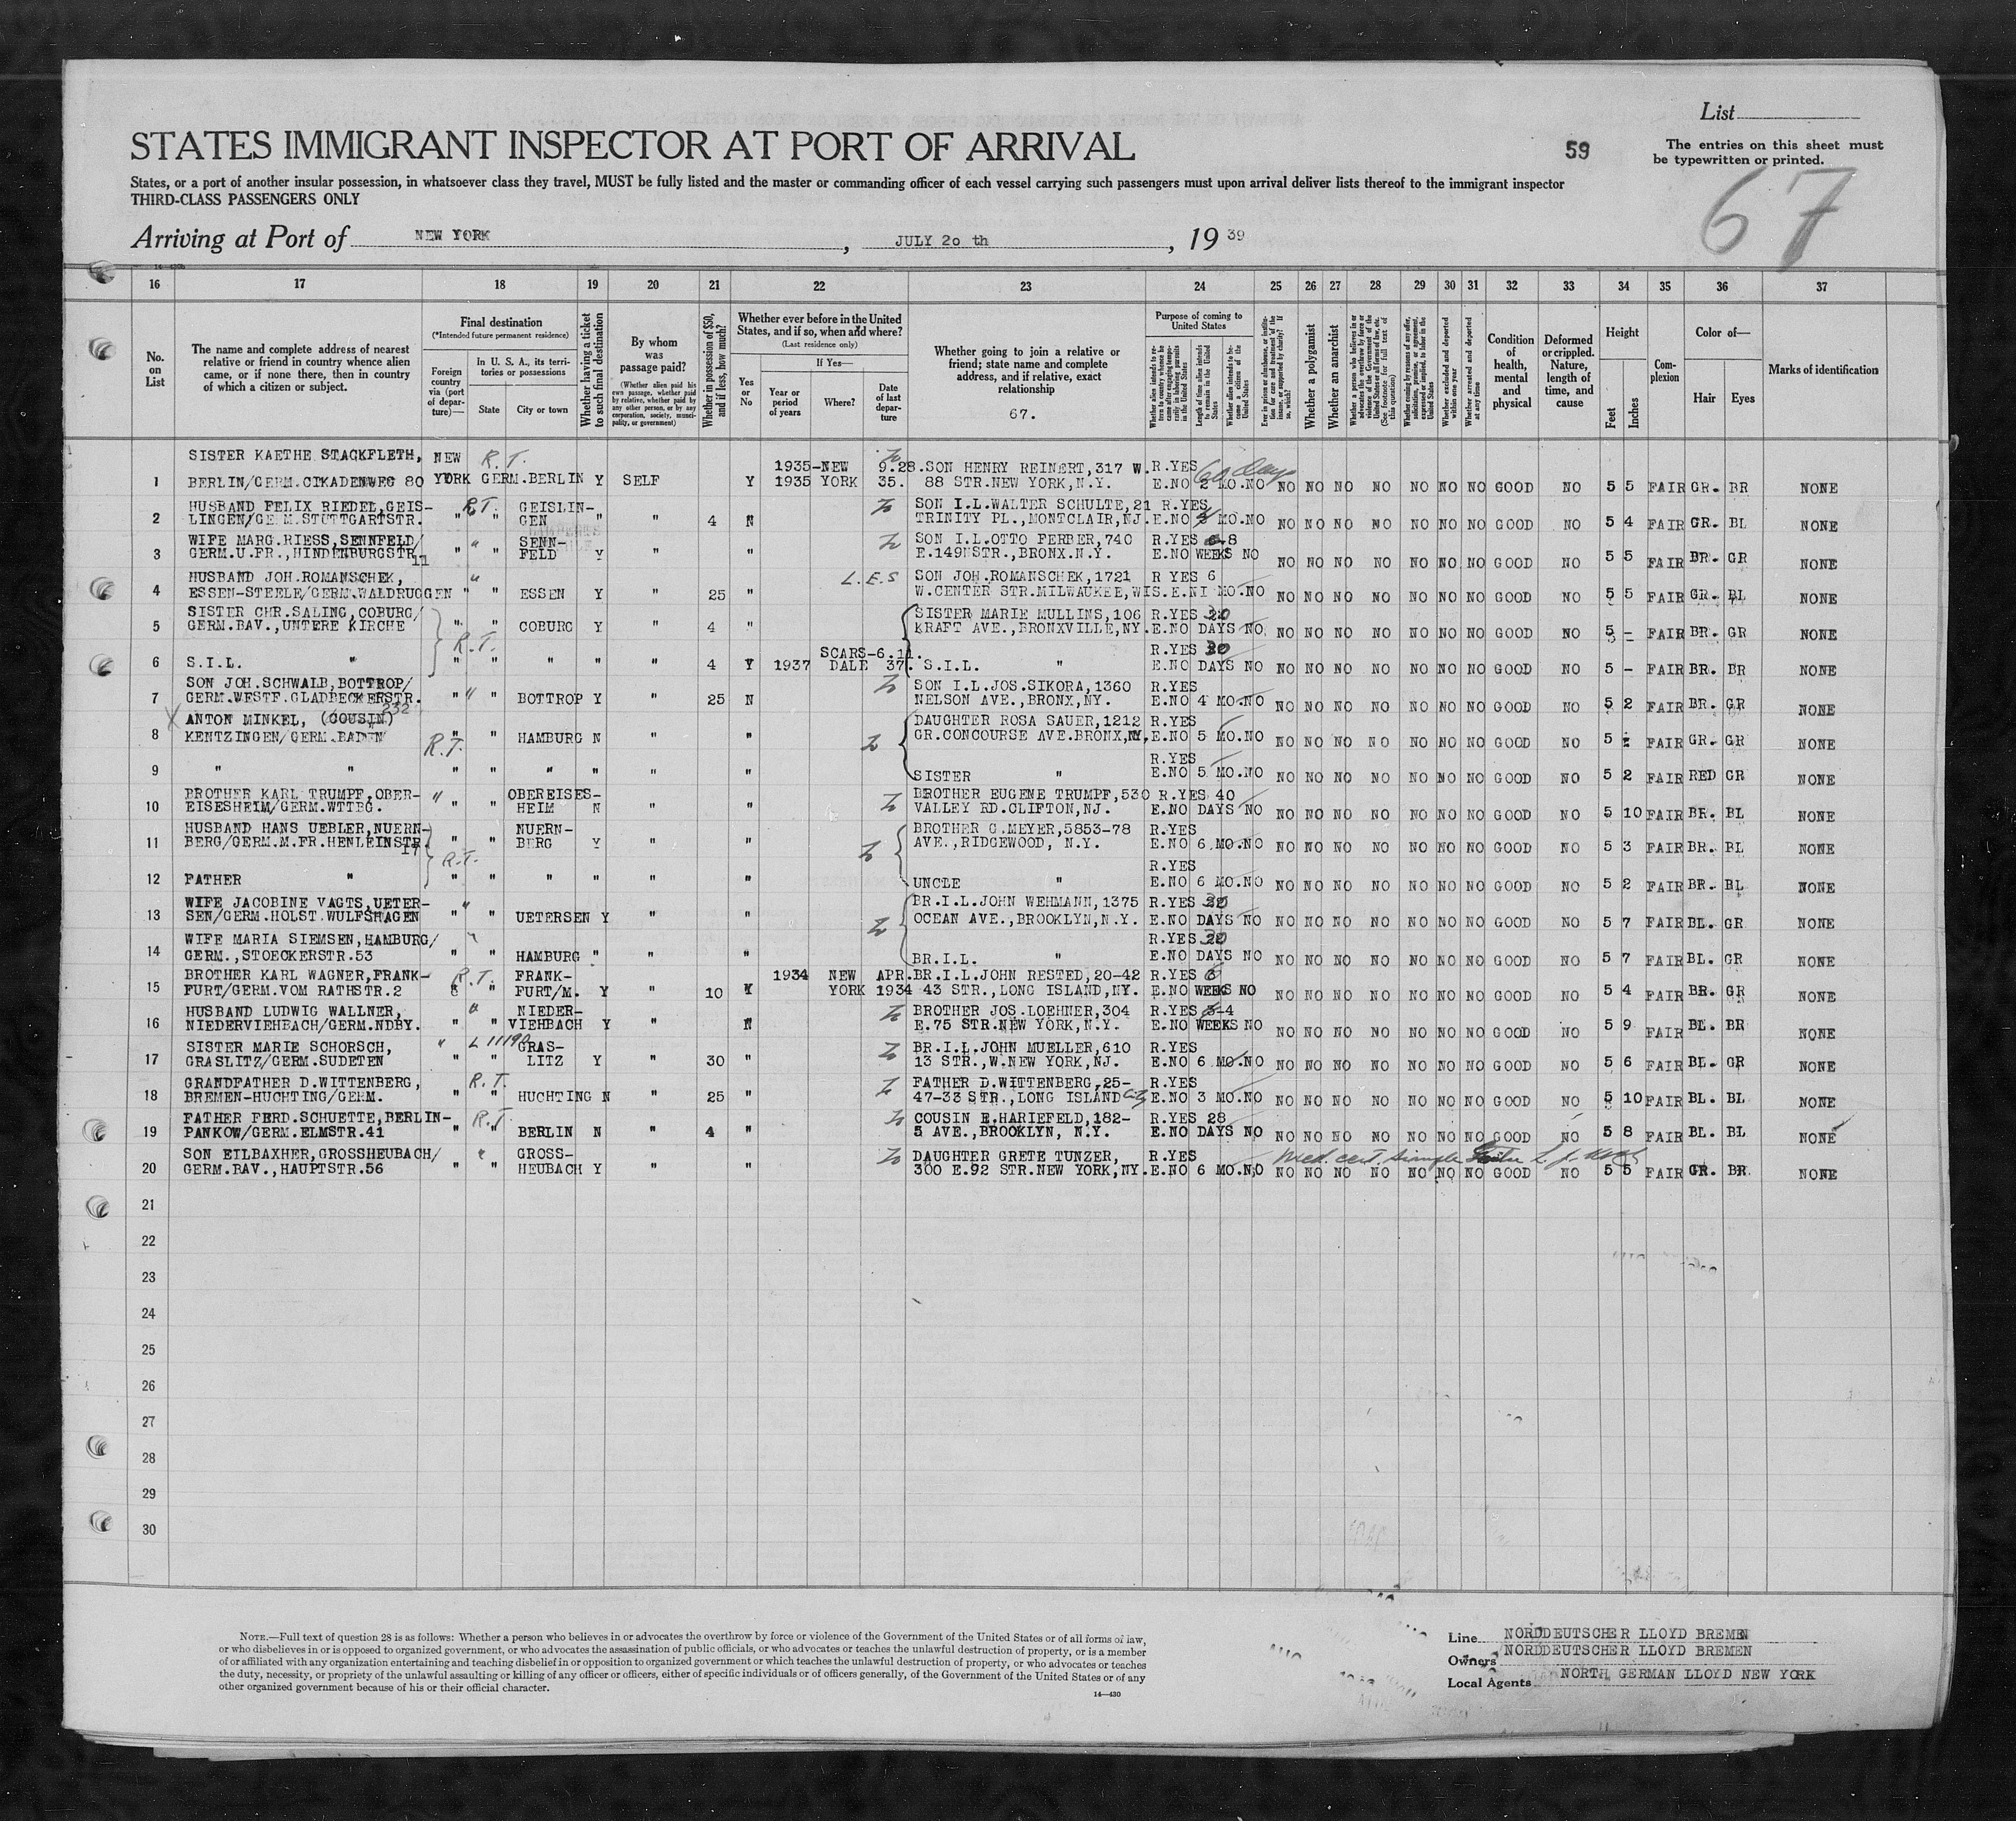 List
STATES IMMIGRANT INSPECTOR AT PORT OF ARRIVAL
59
The entries on this sheet must
be typewritten or printed.
67
States, or a port of another insular possession, in whatsoever class they travel, MUST be fully listed and the master or commanding officer of each vessel carrying such passengers must upon arrival deliver lists thereof to the immigrant inspector
THIRD-CLASS PASSENGERS ONLY
Arriving at Port of NEW YORK, JULY 2o th, 19 39
16 17 18 19 20 21 22 23 24 25 26 27 28 29 30 31 32 33 34 35 36 37
No. on List
The name and complete address of nearest relative or friend in country whence alien came, or if none there, then in country of which a citizen or subject.
Final destination
(*Intended future permanent residence)
Foreign country via (port of departure)—
In U. S. A., its territories or possessions
State
City or town
Whether having a ticket to such final destination
By whom was passage paid?
(Whether alien paid his own passage, whether paid by relative, whether paid by any other person, or by any corporation, society, municipality, or government)
Whether in possession of $50, and if less, how much?
Whether ever before in the United States, and if so, when and where?
(Last residence only)
Yes or No
If Yes—
Year or period of years
Where?
Date of last departure
Whether going to join a relative or friend; state name and complete address, and if relative, exact relationship
67.
Purpose of coming to United States
Whether a polygamist
Whether an anarchist
Whether arrested and deported at any time
Condition of health, mental and physical
Deformed or crippled. Nature, length of time, and cause
Height
Feet
Inches
Complexion
Color of—
Hair
Eyes
Marks of identification
SISTER KAETHE STACKFLETH, NEW R.T. 1935-NEW 9.28. SON HENRY REINERT, 317 W. R.YES 60 days
1 BERLIN/GERM.CIKADENWEG 80 YORK GERM.BERLIN Y SELF Y 1935 YORK 35. 88 STR.NEW YORK,N.Y. E.NO 2 MO.NO NO NO NO NO NO NO NO GOOD NO 5 5 FAIR GR. BR NONE
HUSBAND FELIX RIEDEL,GEIS- R.T. GEISLIN- SON I.L.WALTER SCHULTE,21 R.YES
2 LINGEN/GERM.STUTTGARTSTR. " " GEN " " 4 N TRINITY PL.,MONTCLAIR,NJ. E.NO MO.NO NO NO NO NO NO NO NO GOOD NO 5 4 FAIR GR. BL NONE
WIFE MARG.RIESS,SENNFELD/ " SENN- SON I.L.OTTO FERBER,740 R.YES 8
3 GERM.U.FR.,HINDENBURGSTR. 11 " " FELD Y " " E.149NSTR.,BRONX.N.Y. E.NO WEEKS NO NO NO NO NO NO NO NO GOOD NO 5 5 FAIR BR. GR NONE
HUSBAND JOH.ROMANSCHEK, " L.E.S SON JOH.ROMANSCHEK,1721 R YES 6
4 ESSEN-STEELE/GERM.WALDRUGGEN " " ESSEN Y " 25 " W.CENTER STR.MILWAUKEE,WIS. E.NI MO.NO NO NO NO NO NO NO NO GOOD NO 5 5 FAIR GR. BL NONE
SISTER CHR.SALING,COBURG/ SISTER MARIE MULLINS,106 R.YES
5 GERM.BAV.,UNTERE KIRCHE " " COBURG Y " 4 " KRAFT AVE.,BRONXVILLE,NY. E.NO DAYS NO NO NO NO NO NO NO NO GOOD NO 5 - FAIR BR. GR NONE
R.T. SCARS-6.11. R.YES
6 S.I.L. " " " " " " 4 Y 1937 DALE 37. S.I.L. " E.NO DAYS NO NO NO NO NO NO NO NO GOOD NO 5 - FAIR BR. BR NONE
SON JOH.SCHWALB,BOTTROP/ SON I.L.JOS.SIKORA,1360 R.YES
7 GERM.WESTF.GLADBECKERSTR. 232 " " BOTTROP Y 25 N NELSON AVE.,BRONX,NY. E.NO 4 MO.NO NO NO NO NO NO NO NO GOOD NO 5 2 FAIR BR. GR NONE
X ANTON MINKEL, (COUSIN) DAUGHTER ROSA SAUER,1212 R.YES
8 KENTZINGEN/GERM.BADEN R.T. " " HAMBURG N " " GR.CONCOURSE AVE.BRONX,NY. E.NO 5 MO.NO NO NO NO NO NO NO NO GOOD NO 5 FAIR GR. GR NONE
R.YES
9 " " " " " " " " SISTER " E.NO 5 MO.NO NO NO NO NO NO NO NO GOOD NO 5 2 FAIR RED GR NONE
BROTHER KARL TRUMPF,OBER- " OBEREISES- BROTHER EUGENE TRUMPF,530 R.YES 40
10 EISESHEIM/GERM.WTTBG. " " HEIM N " " VALLEY RD.CLIFTON,NJ. E.NO DAYS NO NO NO NO NO NO NO NO GOOD NO 5 10 FAIR BR. BL NONE
HUSBAND HANS UEBLER,NUERN- NUERN- BROTHER G.MEYER,5853-78 R.YES
11 BERG/GERM.M.FR.HENLEINSTR. 17 " " BERG Y " " AVE.,RIDGEWOOD, N.Y. E.NO 6 MO.NO NO NO NO NO NO NO NO GOOD NO 5 3 FAIR BR. BL NONE
R.T. R.YES
12 FATHER " " " " " " " UNCLE " E.NO 6 MO.NO NO NO NO NO NO NO NO GOOD NO 5 2 FAIR BR. BL NONE
WIFE JACOBINE VAGTS,UETER- " BR.I.L.JOHN WEHMANN,1375 R.YES
13 SEN/GERM.HOLST.WULFSHAGEN " " UETERSEN Y " " OCEAN AVE.,BROOKLYN,N.Y. E.NO DAYS NO NO NO NO NO NO NO NO GOOD NO 5 7 FAIR BL. GR NONE
WIFE MARIA SIEMSEN,HAMBURG/ R.YES
14 GERM.,STOECKERSTR.53 " " HAMBURG " " " BR.I.L. " E.NO DAYS NO NO NO NO NO NO NO NO GOOD NO 5 7 FAIR BL. GR NONE
BROTHER KARL WAGNER,FRANK- R.T. FRANK- 1934 NEW APR. BR.I.L.JOHN RESTED,20-42 R.YES
15 FURT/GERM.VOM RATHSTR.2 " FURT/M. Y " 10 Y YORK 1934 43 STR.,LONG ISLAND,NY. E.NO WEEKS NO NO NO NO NO NO NO NO GOOD NO 5 4 FAIR BR. GR NONE
HUSBAND LUDWIG WALLNER, " NIEDER- BROTHER JOS.LOEHNER,304 R.YES 3-4
16 NIEDERVIEHBACH/GERM.NDBY. " " VIEHBACH Y " N E.75 STR.NEW YORK,N.Y. E.NO WEEKS NO NO NO NO NO NO NO NO GOOD NO 5 9 FAIR BL. BR NONE
SISTER MARIE SCHORSCH, " GRAS- BR.I.L.JOHN MUELLER,610 R.YES
17 GRASLITZ/GERM.SUDETEN " " LITZ Y " 30 " 13 STR.,W.NEW YORK,NJ. E.NO 6 MO.NO NO NO NO NO NO NO NO GOOD NO 5 6 FAIR BL. GR NONE
GRANDFATHER D.WITTENBERG, R.T. FATHER D.WITTENBERG,25- R.YES
18 BREMEN-HUCHTING/GERM. " " HUCHTING N " 25 " 47-33 STR.,LONG ISLAND City E.NO 3 MO.NO NO NO NO NO NO NO NO GOOD NO 5 10 FAIR BL. BL NONE
FATHER FERD.SCHUETTE,BERLIN- R.T. COUSIN E.HARIEFELD,182- R.YES 28
19 PANKOW/GERM.ELMSTR.41 " " BERLIN N " 4 " 5 AVE.,BROOKLYN, N.Y. E.NO DAYS NO NO NO NO NO NO NO NO GOOD NO 5 8 FAIR BL. BL NONE
SON EILBAXHER,GROSSHEUBACH/ " GROSS- DAUGHTER GRETE TUNZER, R.YES med. cert. simple
20 GERM.BAV.,HAUPTSTR.56 " " HEUBACH Y " " 300 E.92 STR.NEW YORK,NY. E.NO 6 MO.NO NO NO NO NO NO NO NO GOOD NO 5 5 FAIR GR. BR NONE
21
22
23
24
25
26
27
28
29
30
NOTE.—Full text of question 28 is as follows: Whether a person who believes in or advocates the overthrow by force or violence of the Government of the United States or of all forms of law,
or who disbelieves in or is opposed to organized government, or who advocates the assassination of public officials, or who advocates or teaches the unlawful destruction of property, or is a member
of or affiliated with any organization entertaining and teaching disbelief in or opposition to organized government or which teaches the unlawful destruction of property, or who advocates or teaches
the duty, necessity, or propriety of the unlawful assaulting or killing of any officer or officers, either of specific individuals or of officers generally, of the Government of the United States or of any
other organized government because of his or their official character.
14—430
Line NORDDEUTSCHER LLOYD BREMEN
Owners NORDDEUTSCHER LLOYD BREMEN
Local Agents NORTH GERMAN LLOYD NEW YORK